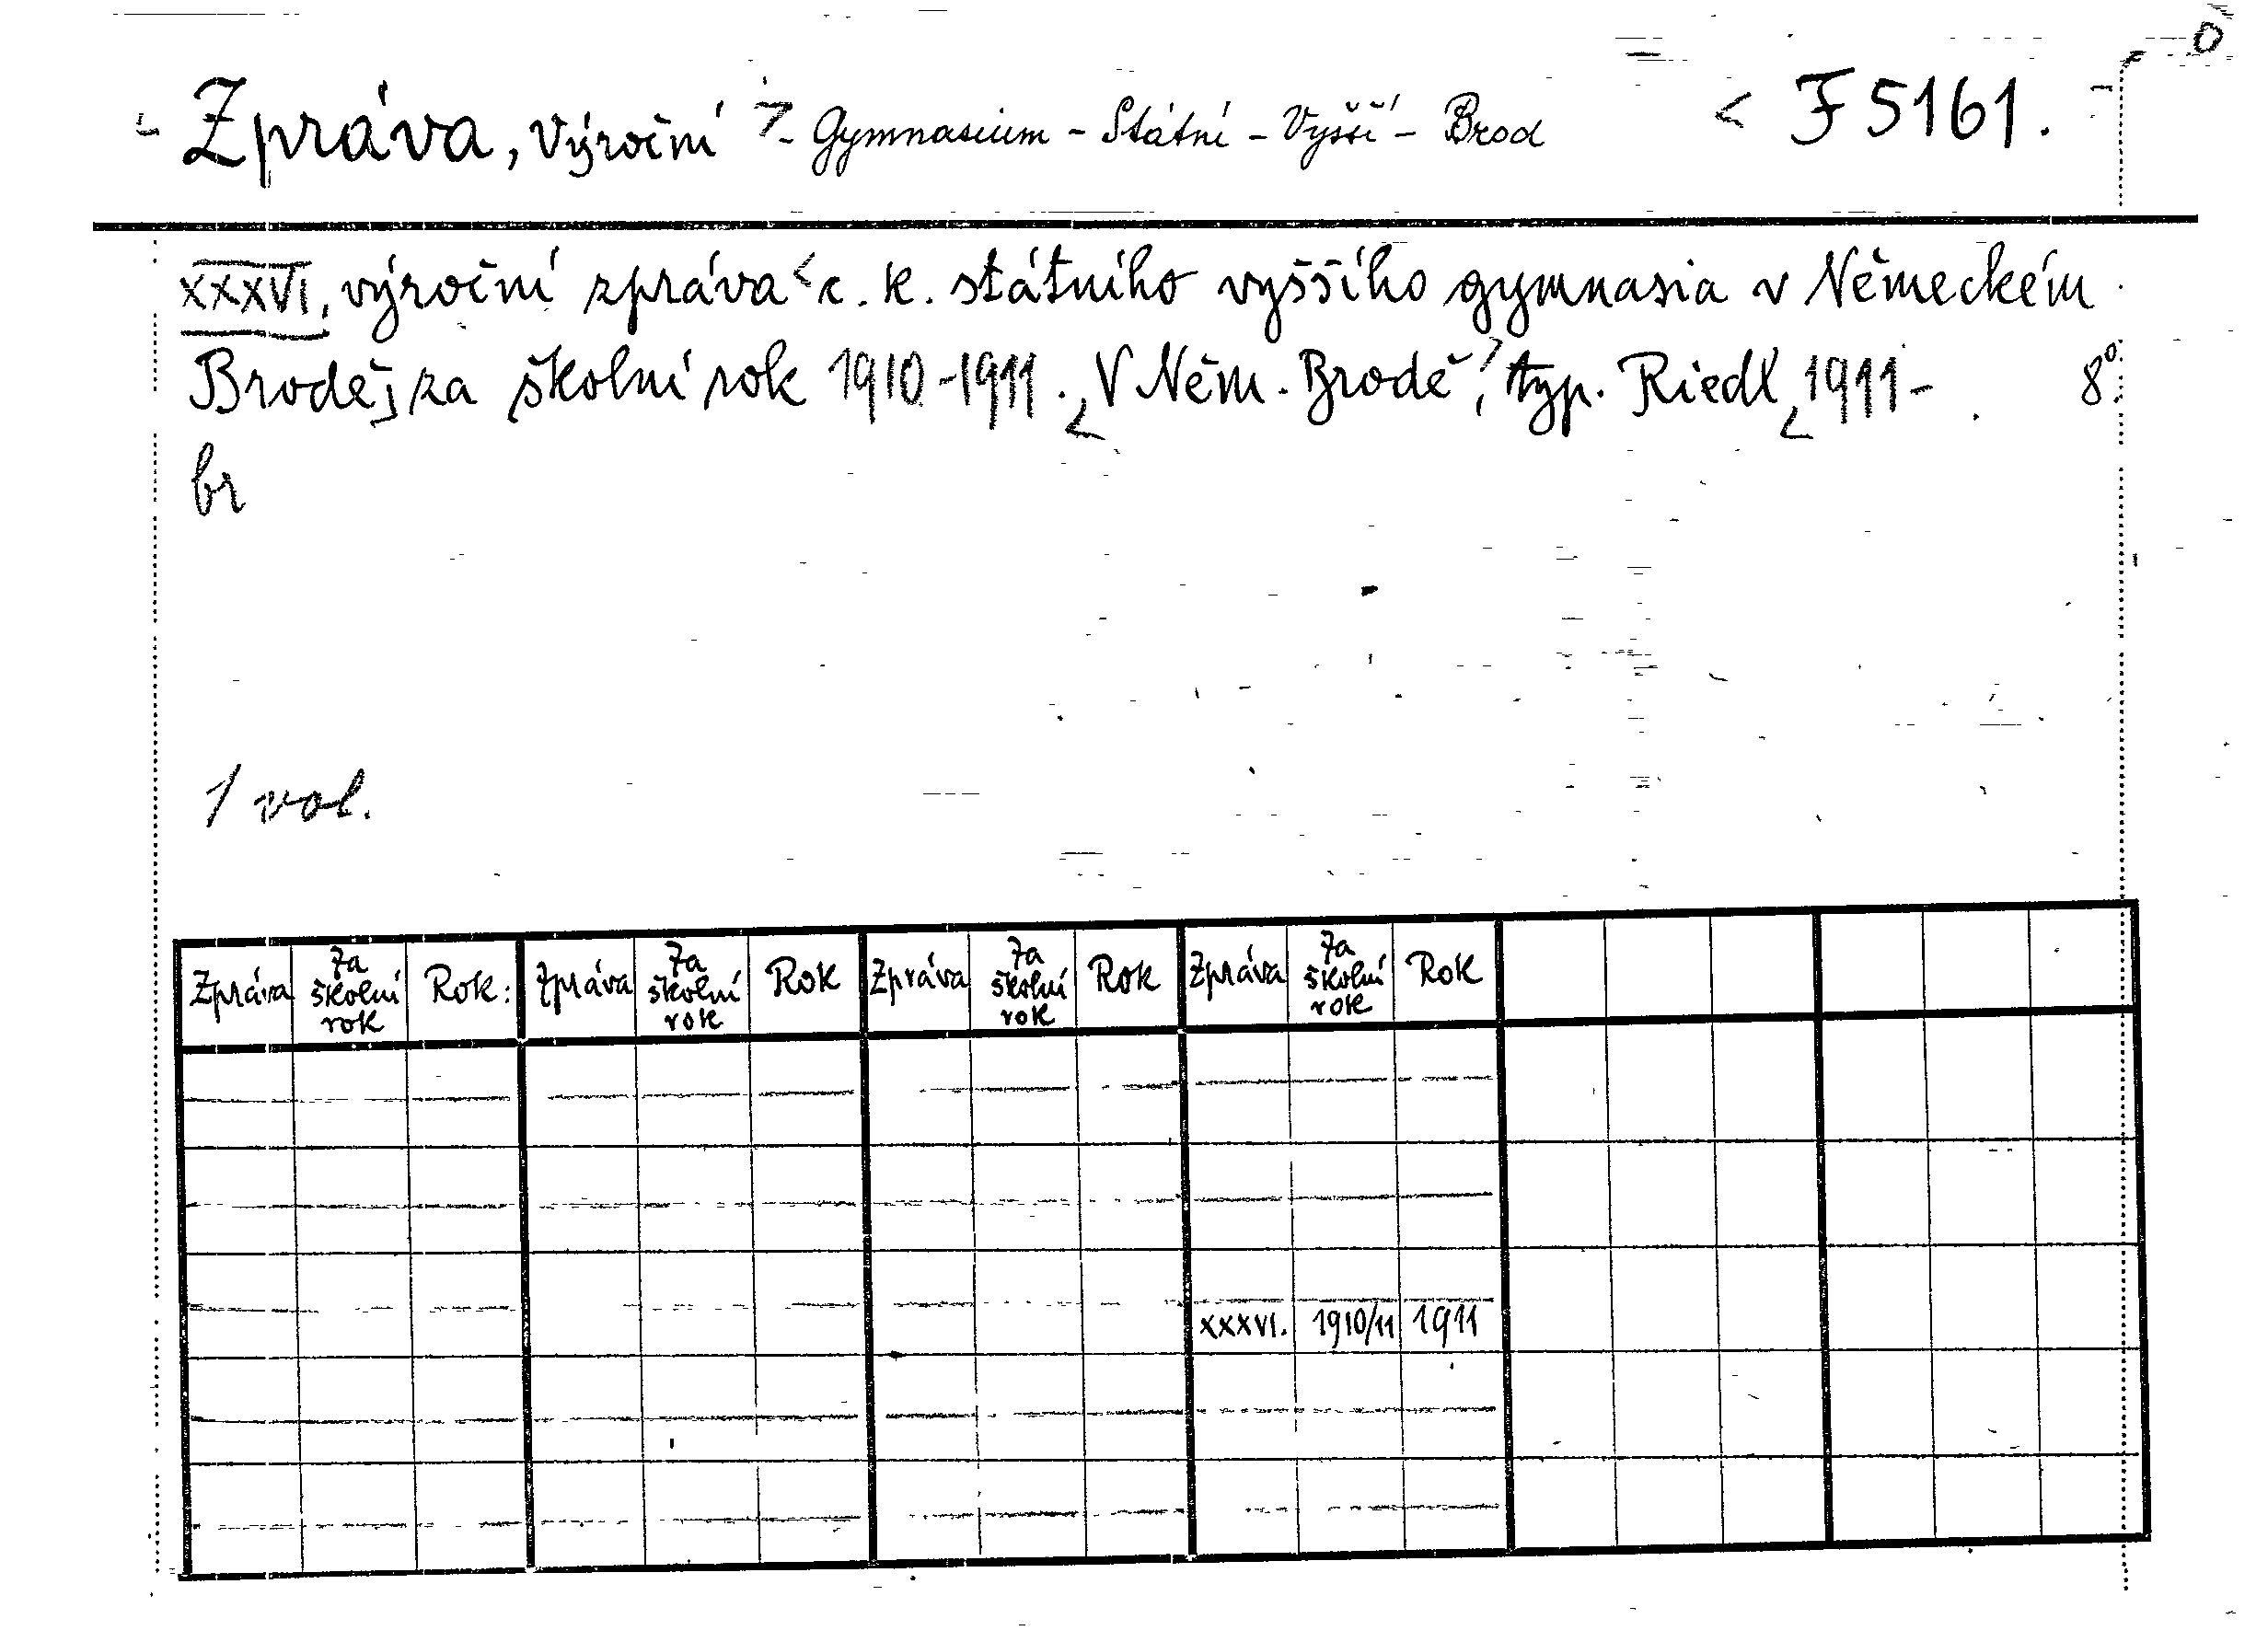 Zpráva, výroční - Gymnasium - Státní - Vyšší - Brod F 5161.
XXXVI. výroční zpráva c. k. státního vyššího gymnasia v Německém
Brodě za školní rok 1910-1911. V Něm. Brodě, typ. Riedl 1911- 8°.
br
1 vol.
Zpráva Za školní rok Rok: Zpráva Za školní rok Rok Zpráva Za školní rok Rok Zpráva Za školní rok Rok
XXXVI. 1910/11 1911